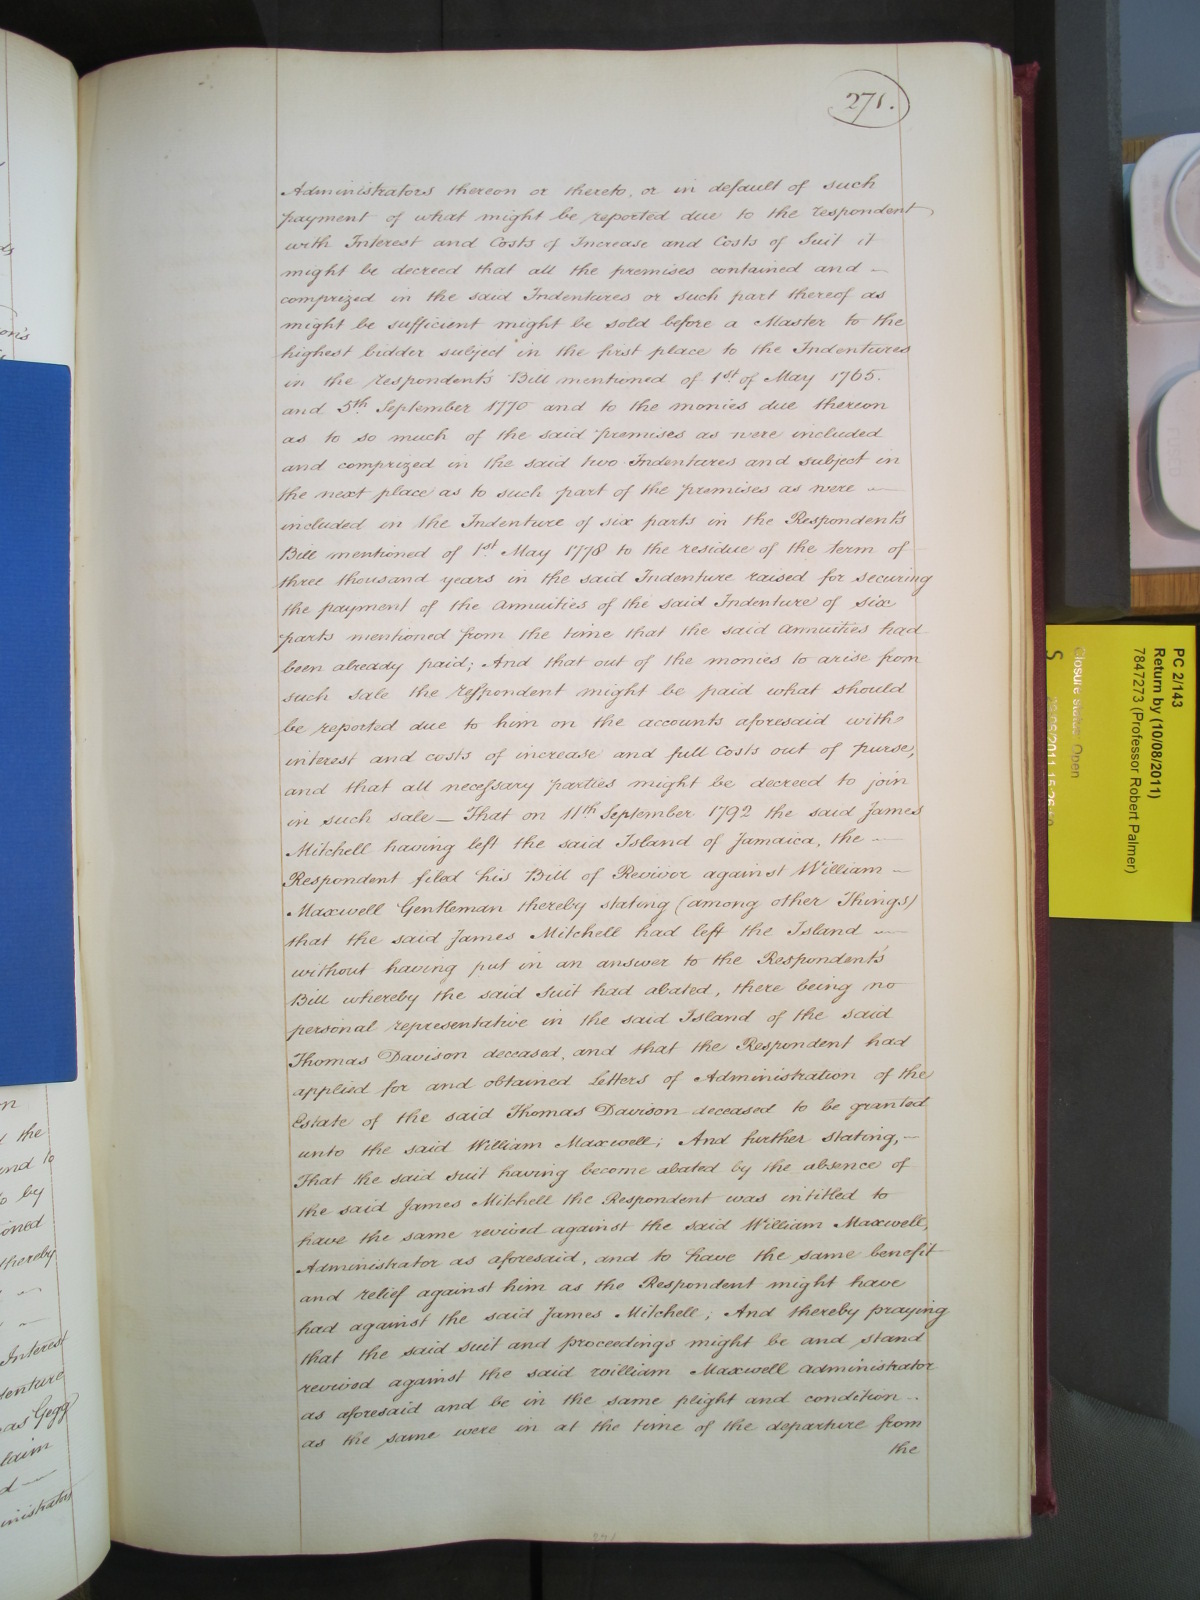 271.
Administrators thereon or thereto, or in default of such
payment of what might be reported due to the respondent
with Interest and Costs of Increase and Costs of Suit it
might be decreed that all the premises contained and —
comprized in the said Indentures or such part thereof as
might be sufficient might be sold before a Master to the
highest bidder subject in the first place to the Indentures
in the respondent's Bill mentioned of 1st. of May 1765.
and 5th. September 1770 and to the monies due thereon
as to so much of the said premises as were included
and comprized in the said two Indentures and subject in
the next place as to such part of the premises as were —
included in the Indenture of six parts in the Respondent's
Bill mentioned of 1st. May 1778 to the residue of the term of
three thousand years in the said Indenture raised for securing
the payment of the annuities of the said Indenture of six
parts mentioned from the time that the said annuities had
been already paid; And that out of the monies to arise from
such sale the respondent might be paid what should
be reported due to him on the accounts aforesaid with
interest and costs of increase and full Costs out of purse,
and that all necessary parties might be decreed to join
in such sale — That on 11th September 1792 the said James
Mitchell having left the said Island of Jamaica, the —
Respondent filed his Bill of Revivor against William —
Maxwell Gentleman thereby stating (among other Things)
that the said James Mitchell had left the Island —
without having put in an answer to the Respondent's
Bill whereby the said Suit had abated, there being no
personal representative in the said Island of the said
Thomas Davison deceased, and that the Respondent had
applied for and obtained Letters of Administration of the
Estate of the said Thomas Davison deceased to be granted
unto the said William Maxwell; And further stating, —
That the said suit having become abated by the absence of
the said James Mitchell the Respondent was intitled to
have the same revived against the said William Maxwell,
Administrator as aforesaid, and to have the same benefit
and relief against him as the Respondent might have
had against the said James Mitchell; And thereby praying
that the said suit and proceedings might be and stand
revived against the said William Maxwell administrator
as aforesaid and be in the same plight and condition —
as the same were in at the time of the departure from
the
PC 2/143
Return by (10/08/2011)
7847273 (Professor Robert Palmer)
Closure status: Open
S
n
the
end to
by
ioned
thereby
Interest
denture
as Gegg
laim
d —
inistrators